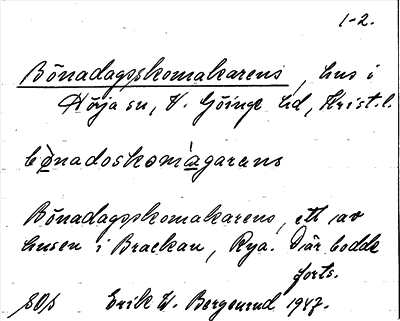 1-2.
Bönadagsskomakarens, hus i
Hörja sn, V. Göinge hd, Krist. l.
bønadoskomàgarans
Bönadagsskomakarens, ett av
husen i Brackan, Rya. Där bodde
forts.
Erik W. Bergenrud 1947.